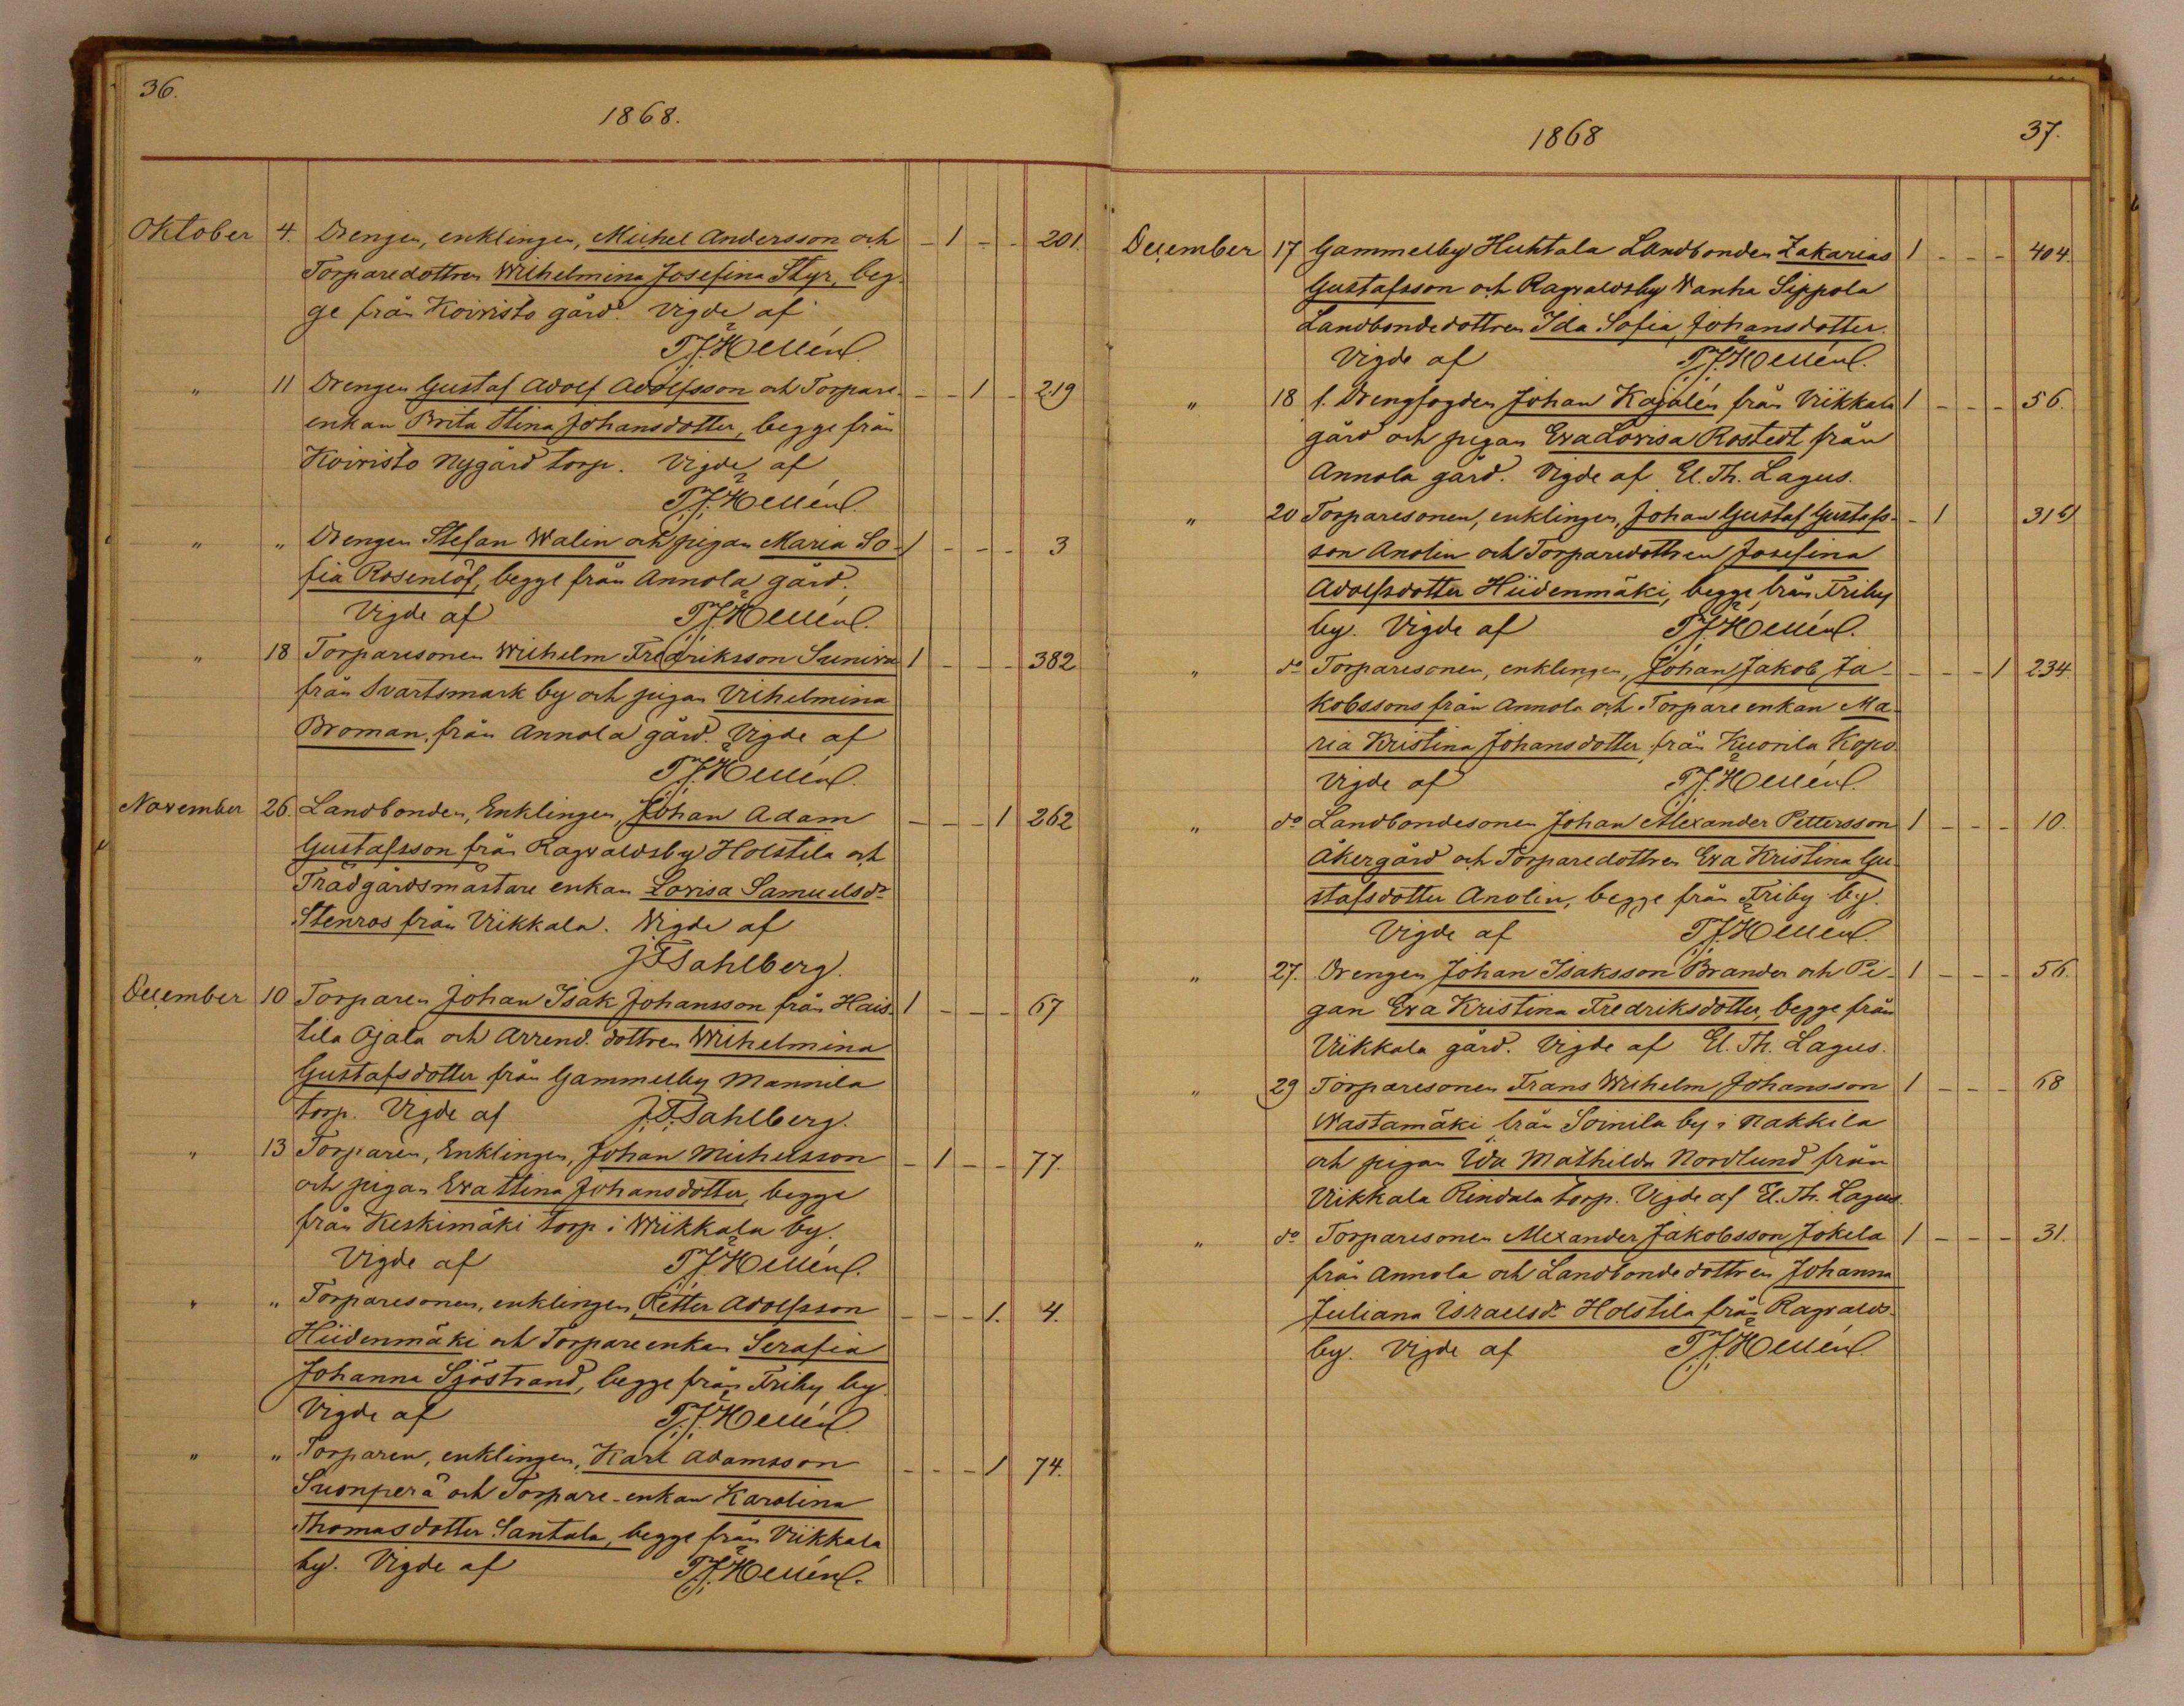 36.
1868.
Oktober 4. Drengen, enklingen, Michel Andersson och - 1 - - 201.
Torparedottren Wilhelmina Josefina Styr, beg-
ge från Koivisto gård. Vigde af
" 11 Drengen Gustaf Adolf Adolfsson och Torpare- - - 1 - 219
enkan Brita Stina Johansdotter, begge från
Koivisto Nygård torp. Vigde af
" " Drengen Stefan Walin och pigan Maria So- 1 - - - 3
fia Rosenlöf, begge från Annola gård.
Vigde af
" 18 Torparesonen Wilhelm Fredriksson 1 - - - 382
från Svartsmark by och pigan Vilhelmina
Broman, från Annola gård. Vigde af
November 26. Landbonden, Enklingen, Johan Adam - - - 1 262
Gustafsson från Ragvaldsby Holstila och
Trädgårdsmästare enkan Lovisa Samuelsdr
Stenros från Viikkala. Vigde af
J. F. Sahlberg.
December 10 Torparen Johan Isak Johansson från Hais- 1 - - - 67
tila Ojala och Arrend. dottren Wilhelmina
Gustafsdotter från Gammelby Mannila
torp. Vigde af J. F. Sahlberg.
" 13 Torparen, Enklingen, Johan Michelsson - 1 - - 77.
och pigan Eva Stina Johansdotter, begge
från Keskimäki torp i Wiikkala by.
Vigde af
" " Torparesonen, enklingen, Petter Adolfsson - - - 1. 4.
Hiidenmäki och Torpare enkan Serafia
Johanna Sjöstrand, begge från Friby by.
Vigde af
" " Torparen, enklingen, Karl Adamsson - - - 1 74.
Suonperä och Torpare-enkan Karolina
Thomasdotter Santala, begge från Viikkala
by. Vigde af
1868
37.
December 17 Gammelby Huhtala Landbonden Zakarias 1 - - - 404.
Gustafsson och Ragvaldsby Wanha Sippola
Landbondedottren Ida Sofia Johansdotter.
Vigde af
" 18 f. Drengfogden Johan Kajalén från Viikkala 1 - - - 56.
gård och pigan Eva Lovisa Rostedt från
Annola gård. Vigde af El. Th. Lagus.
" 20 Torparesonen, enklingen, Johan Gustaf Gustafs- - 1
son Anolin och Torparedottren Josefina
Adolfsdotter Hiidenmäki, begge från Friby
by. Vigde af
" do Torparesonen, enklingen, Johan Jakob Ja- - - - 1 234.
kobssons från Annola och Torpare enkan Ma-
ria Kristina Johansdotter från Kuorila Kopo
Vigde af
" do Landbondesonen Johan Alexander Pettersson 1 - - - 10.
Åkergård och Torparedottren Eva Kristina Gu-
stafsdotter Anolin, begge från Friby by.
Vigde af
" 27. Drengen Johan Isaksson Brander och Pi- 1 - - - 56.
gan Eva Kristina Fredriksdotter, begge från
Viikkala gård. Vigde af El. Th. Lagus.
" 29 Torparesonen Frans Wilhelm Johansson 1 - - - 68
Wastamäki från Soinila by i Nakkila
och pigan Ida Mathilda Nordlund från
Viikkala Rindala torp. Vigde af El. Th. Lagus.
" do Torparesonen Alexander Jakobsson Jokela 1 - - - 31.
från Annola och Landbonde dottren Johanna
Juliana Israelsdr Holstila från Ragvalds-
by. Vigde af